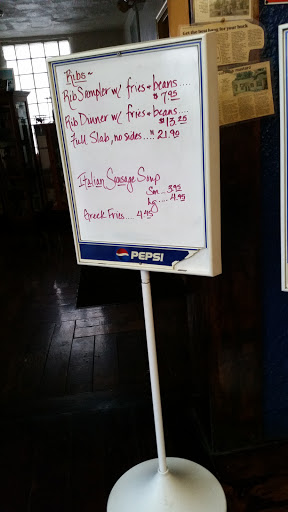 Ribs ~
Rib Sampler w/ fries & beans....
$ 7.95
Rib Dinner w/ fries & beans....
$ 13.25
Full Slab, no sides... $ 21.90
Italian Sausage Soup
Sm... 3.95
Lg.... 4.95
Greek Fries.... 4.45
PEPSI